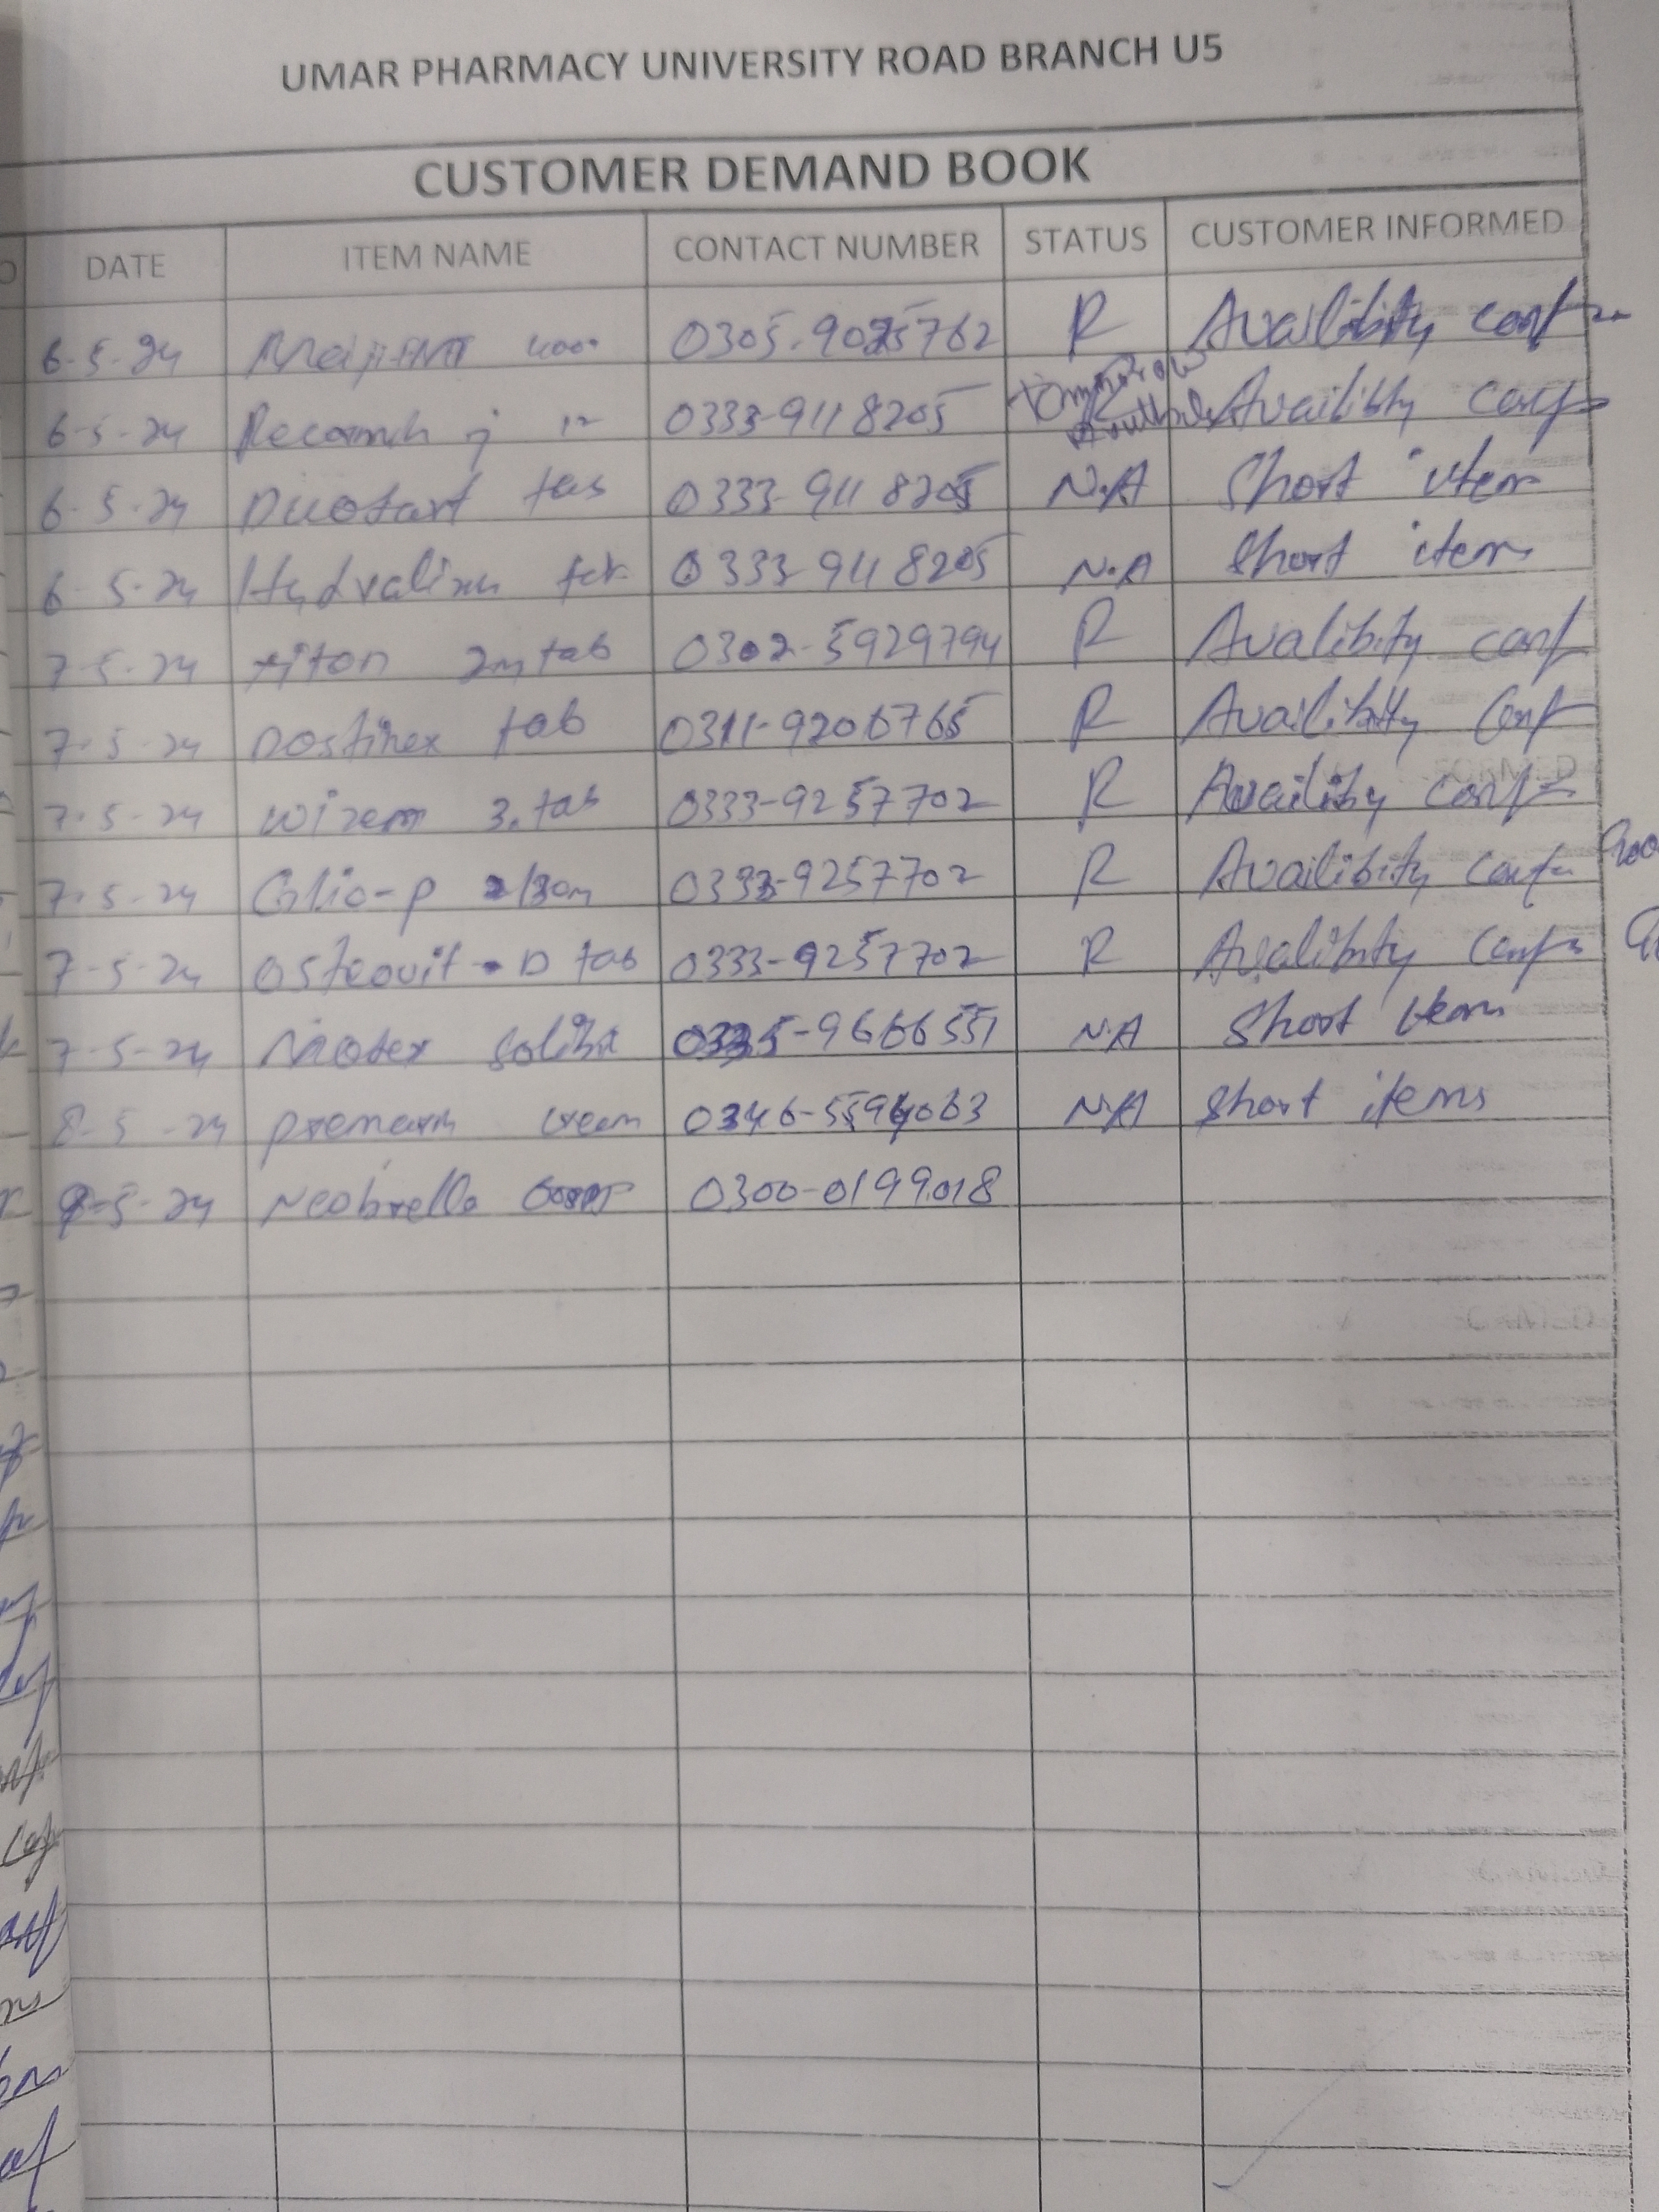 UMAR PHARMACY UNIVERSITY ROAD BRANCH U5
CUSTOMER DEMAND BOOK
DATE ITEM NAME CONTACT NUMBER STATUS CUSTOMER INFORMED
6-5-24 0305-9025762 R Availibity conf
6-5-24 0333-9118205 Availibity conf
6-5-24 Duotart tab 0333-9118205 N.A Short item
6-5-24 0333-9118205 N.A Short item
7-5-24 xiton 2m tab 0302-5929794 R Avalibity conf
7-5-24 Dostinex tab 0311-9206765 R Availibity Conf
7-5-24 wizem 3. tab 0333-9257702 R Availibity conf
7-5-24 0333-9257702 R Availibity conf
7-5-24 Osteovit-D tab 0333-9257702 R Avalibity conf
7-5-24 0335-9666551 N.A Short item
8-5-24 premarin cream 0346-5594063 N.A Short items
8-5-24 Neobrello 0300-0199018